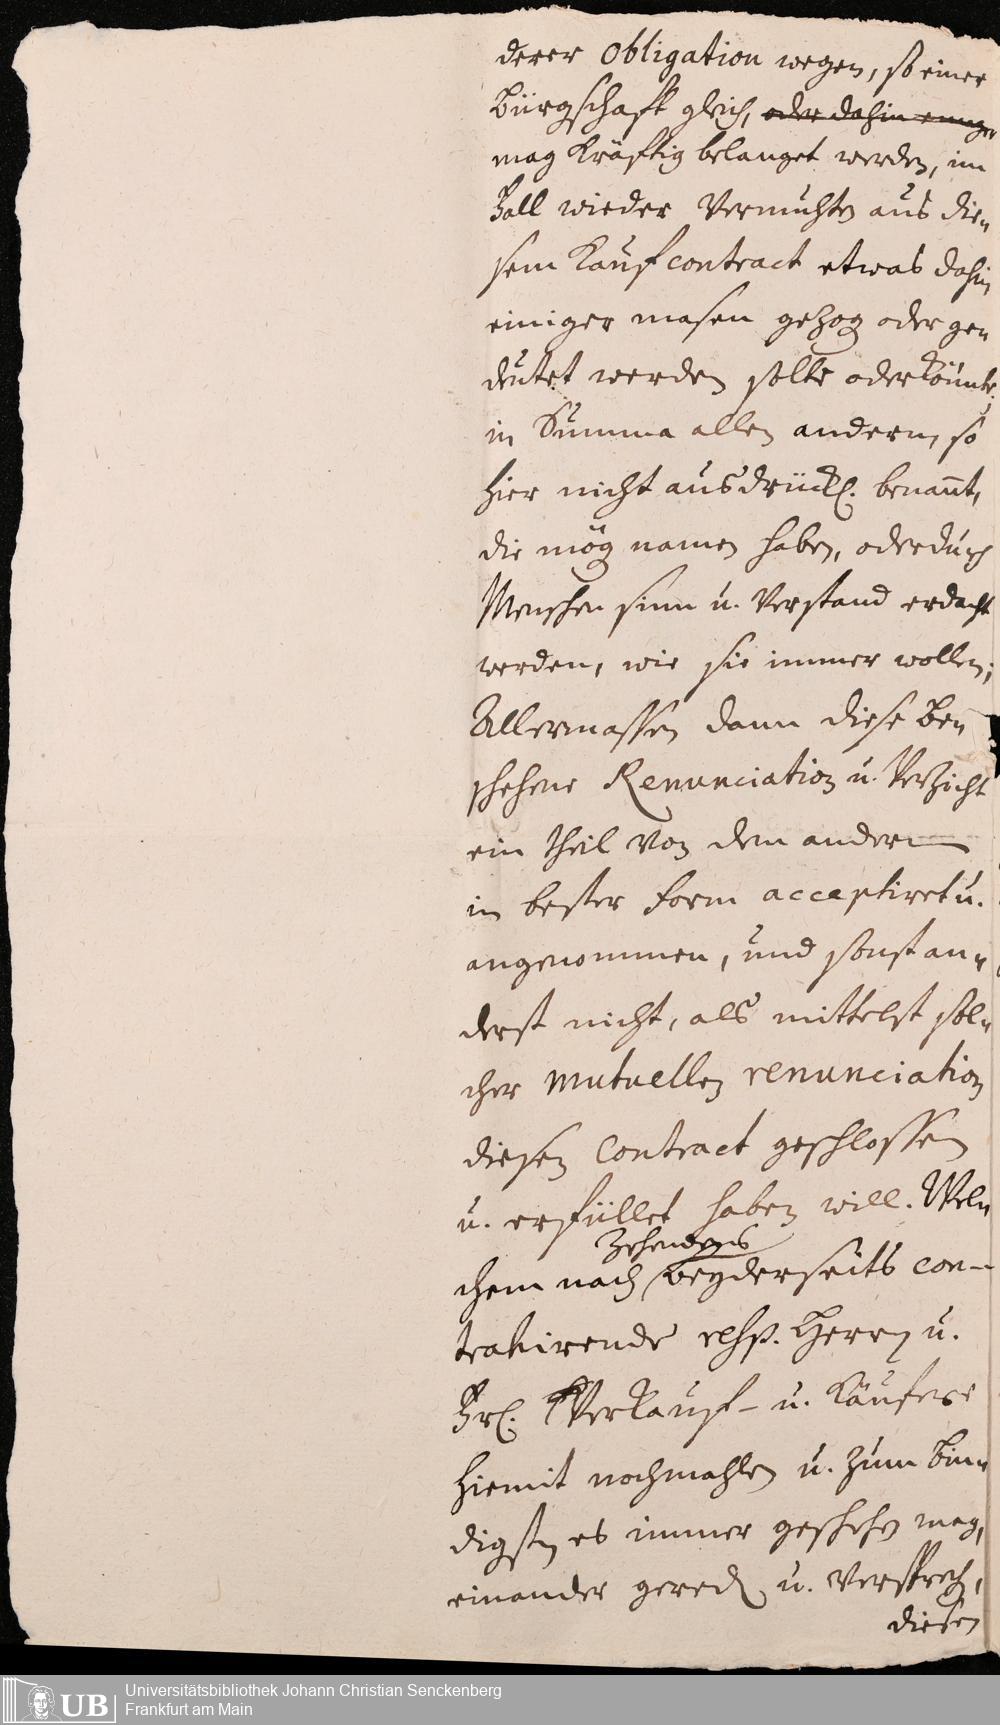 derer Obligation wegen, so einer
Bürgschafft gleich, oder dahin einiger
mag kräfftig belanget werden, im
Fall wieder Vermuthen aus die-
sem Kaufcontract etwas dahin
einiger masen gezog oder ge-
deutet werden solte oder könnte,
in Summa allen andern, so
hier nicht ausdrückl. benannt,
die mög namen haben, oder durch
Menschen sinn u. Verstand erdacht
werden, wie sie immer wollen;
Allermassen dann diese be-
schehene Renunciation u. Verzicht
ein theil von dem andern
in bester form acceptiret u.
angenommen, und sonst an-
derst nicht, als mittelst sol-
cher mutuellen renunciation
diesen Contract geschlossen
u. erfüllet haben will. Wel-
chem nach beyderseits con-
trahirende resp. Herrn u.
Frl. Verkauf- u. Käufere
hiemit nochmahlen u. zum bün-
digsten es immer geschehen mag,
einander gered u. versprech,
diesen
Universitätsbibliothek Johann Christian Senckenberg
Frankfurt am Main
UB